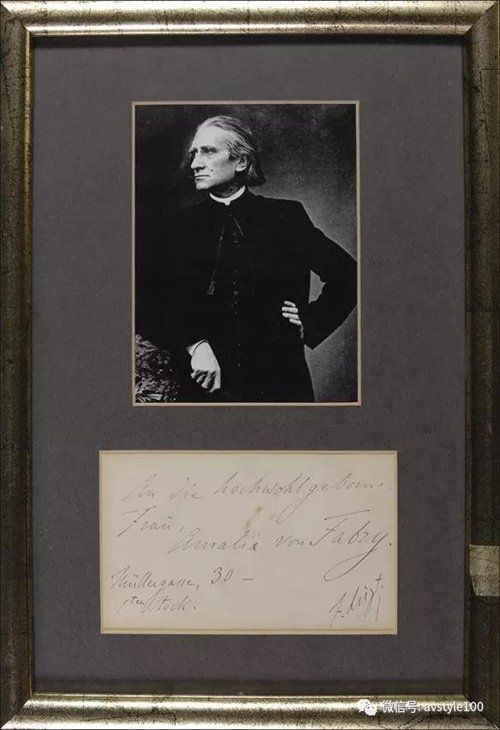 An die hochwohlgeborne
Frau,
Amalia von Fabry.
Müllergasse, 30 –
1ten Stock.
F. Liszt
微信号: avstyle100